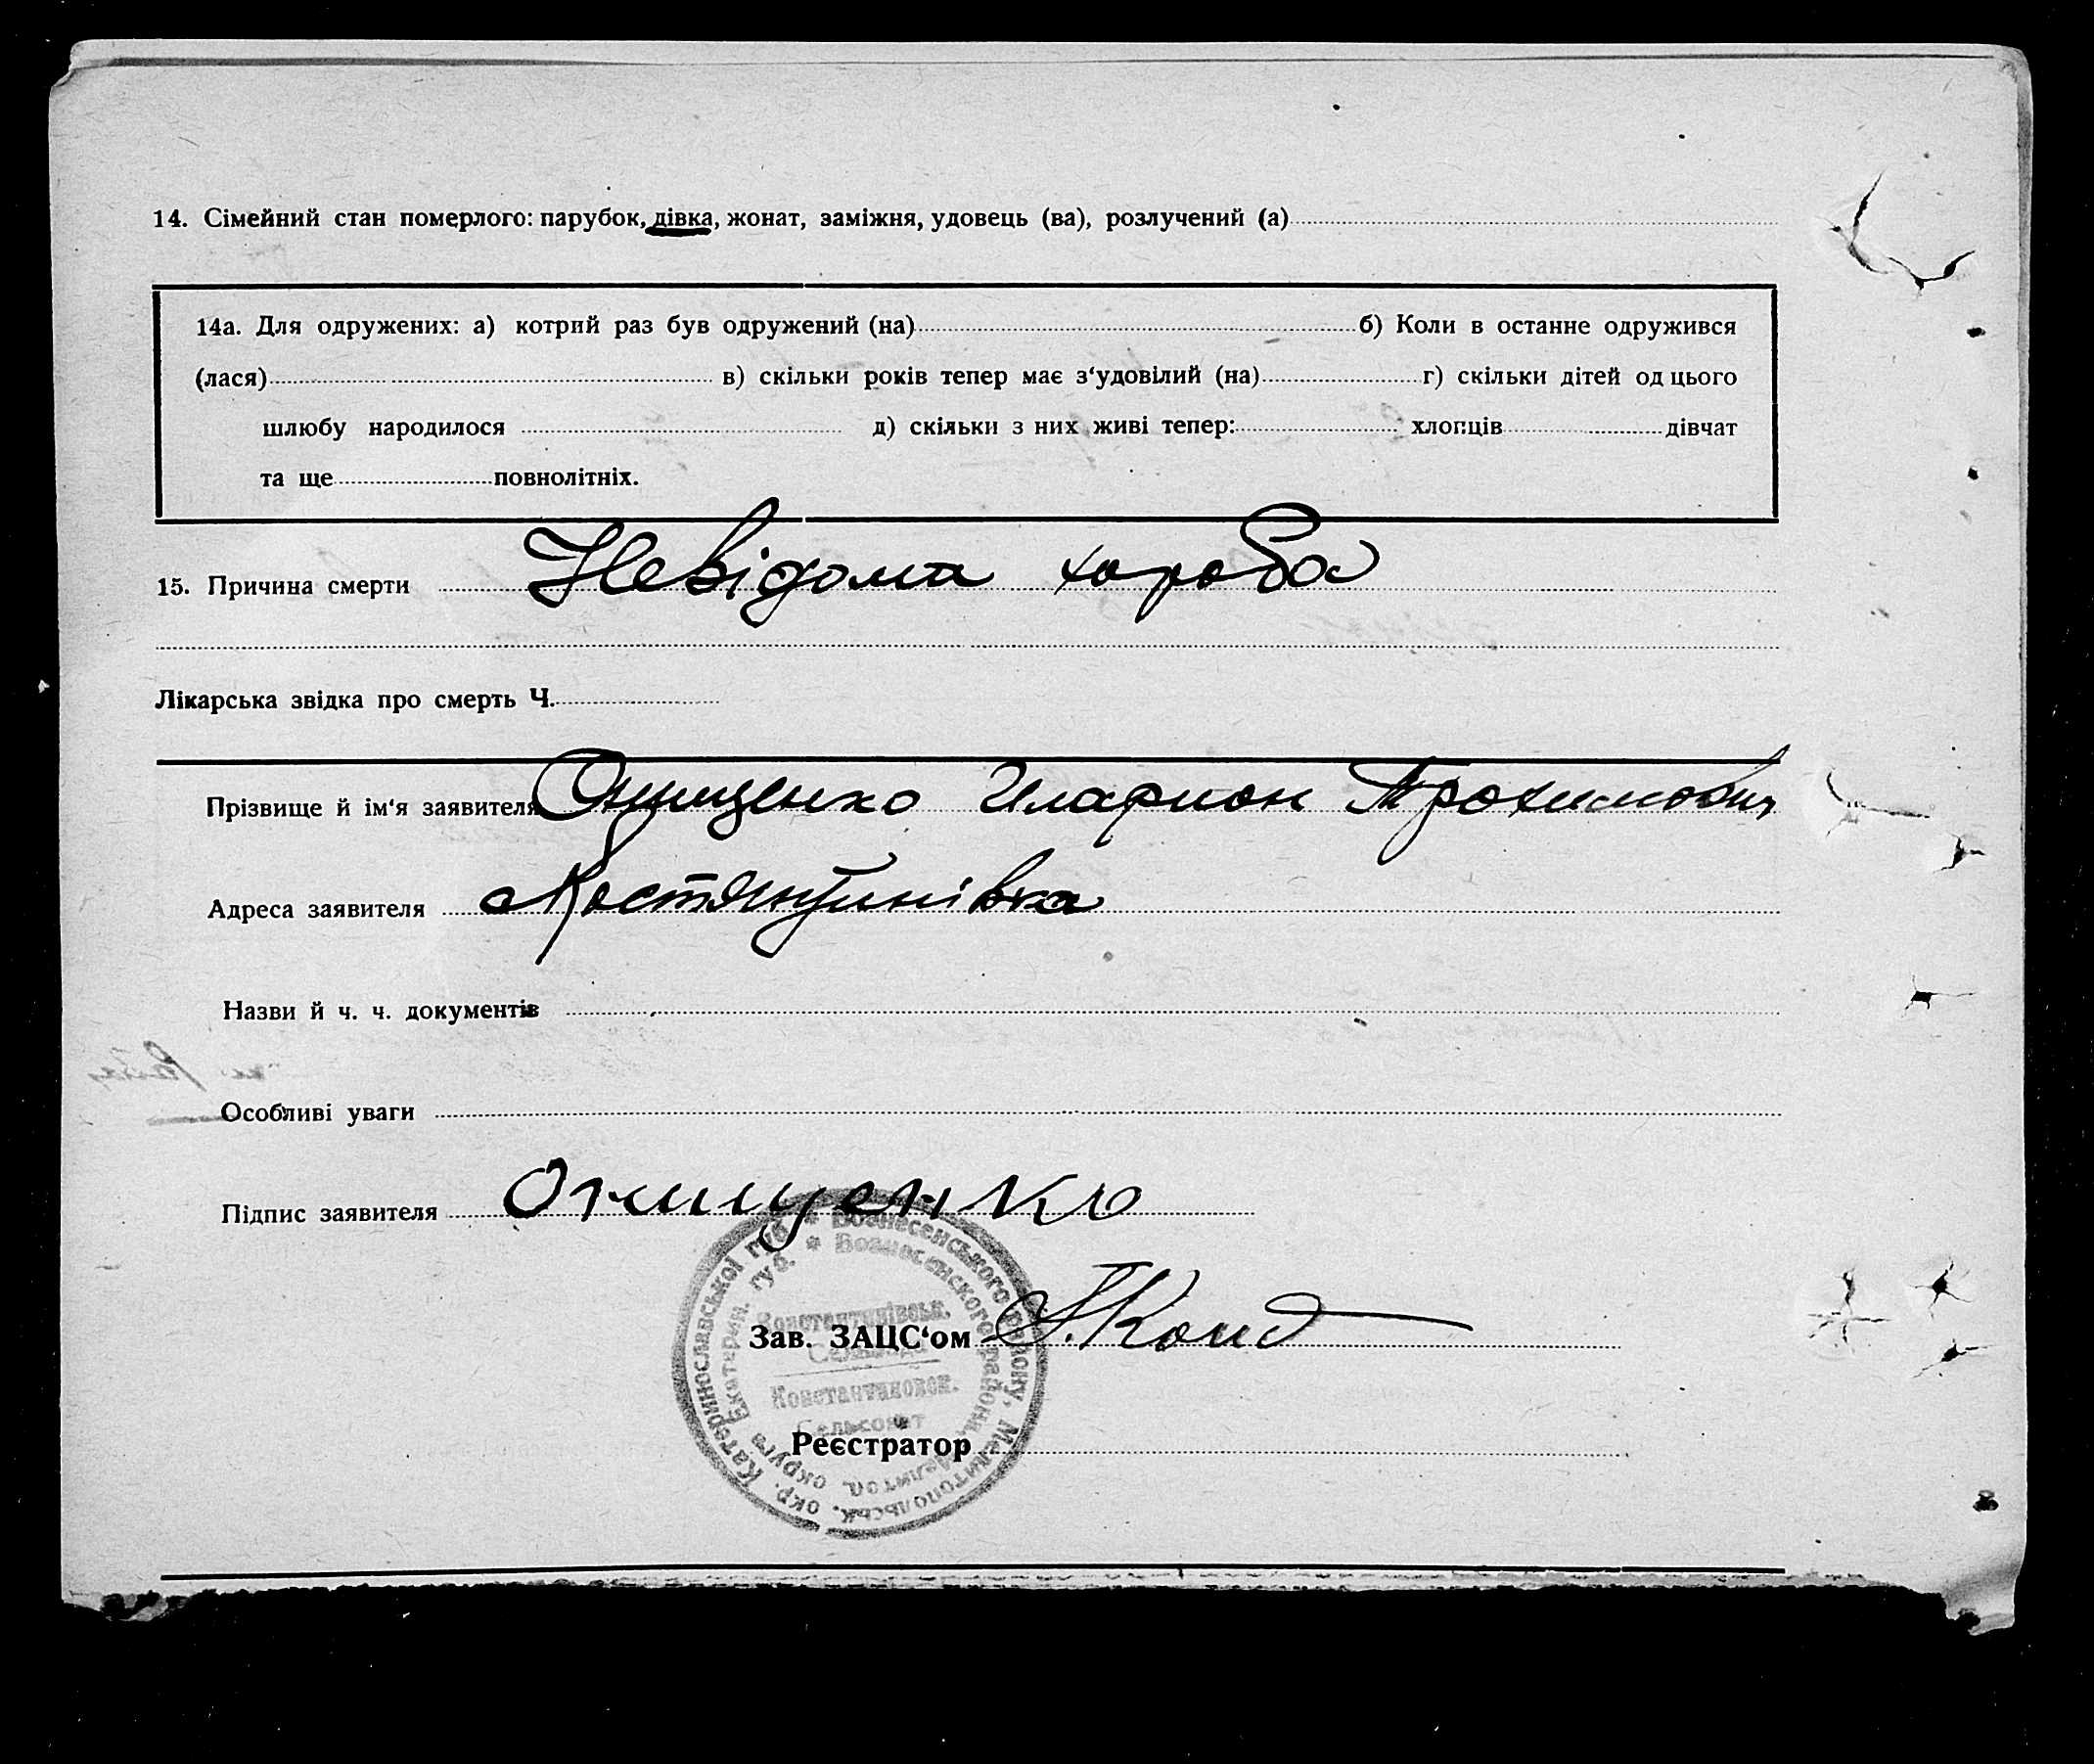 14. Сімейний стан померлого: парубок, дівка, жонат, заміжня, удовець (ва), розлучений (а)
14а. Для одружених: а) котрий раз був одружений (на) б) Коли в останне одружився
(лася) в) скільки років тепер має з‘удовілий (на) г) скільки дітей од цього
шлюбу народилося д) скільки з них живі тепер: хлопців дівчат
та ще повнолітніх.
15. Причина смерти Невідома хороба
Лікарська звідка про смерть Ч.
Прізвище й ім‘я заявителя Онищенко Иларион Трохимович
Адреса заявителя Костянтинівка
Назви й ч. ч. документів
Особливі уваги
Підпис заявителя Онищенко
Зав. ЗАЦС‘ом
Реєстратор
Катеринославської губ. * Вознесенського району, Мелитопольськ. окр.
Екатерин. губ. * Вознесенского района, Мелитоп. округа
Константинівськ.
Сельрада
Константиновск.
Сельсовет